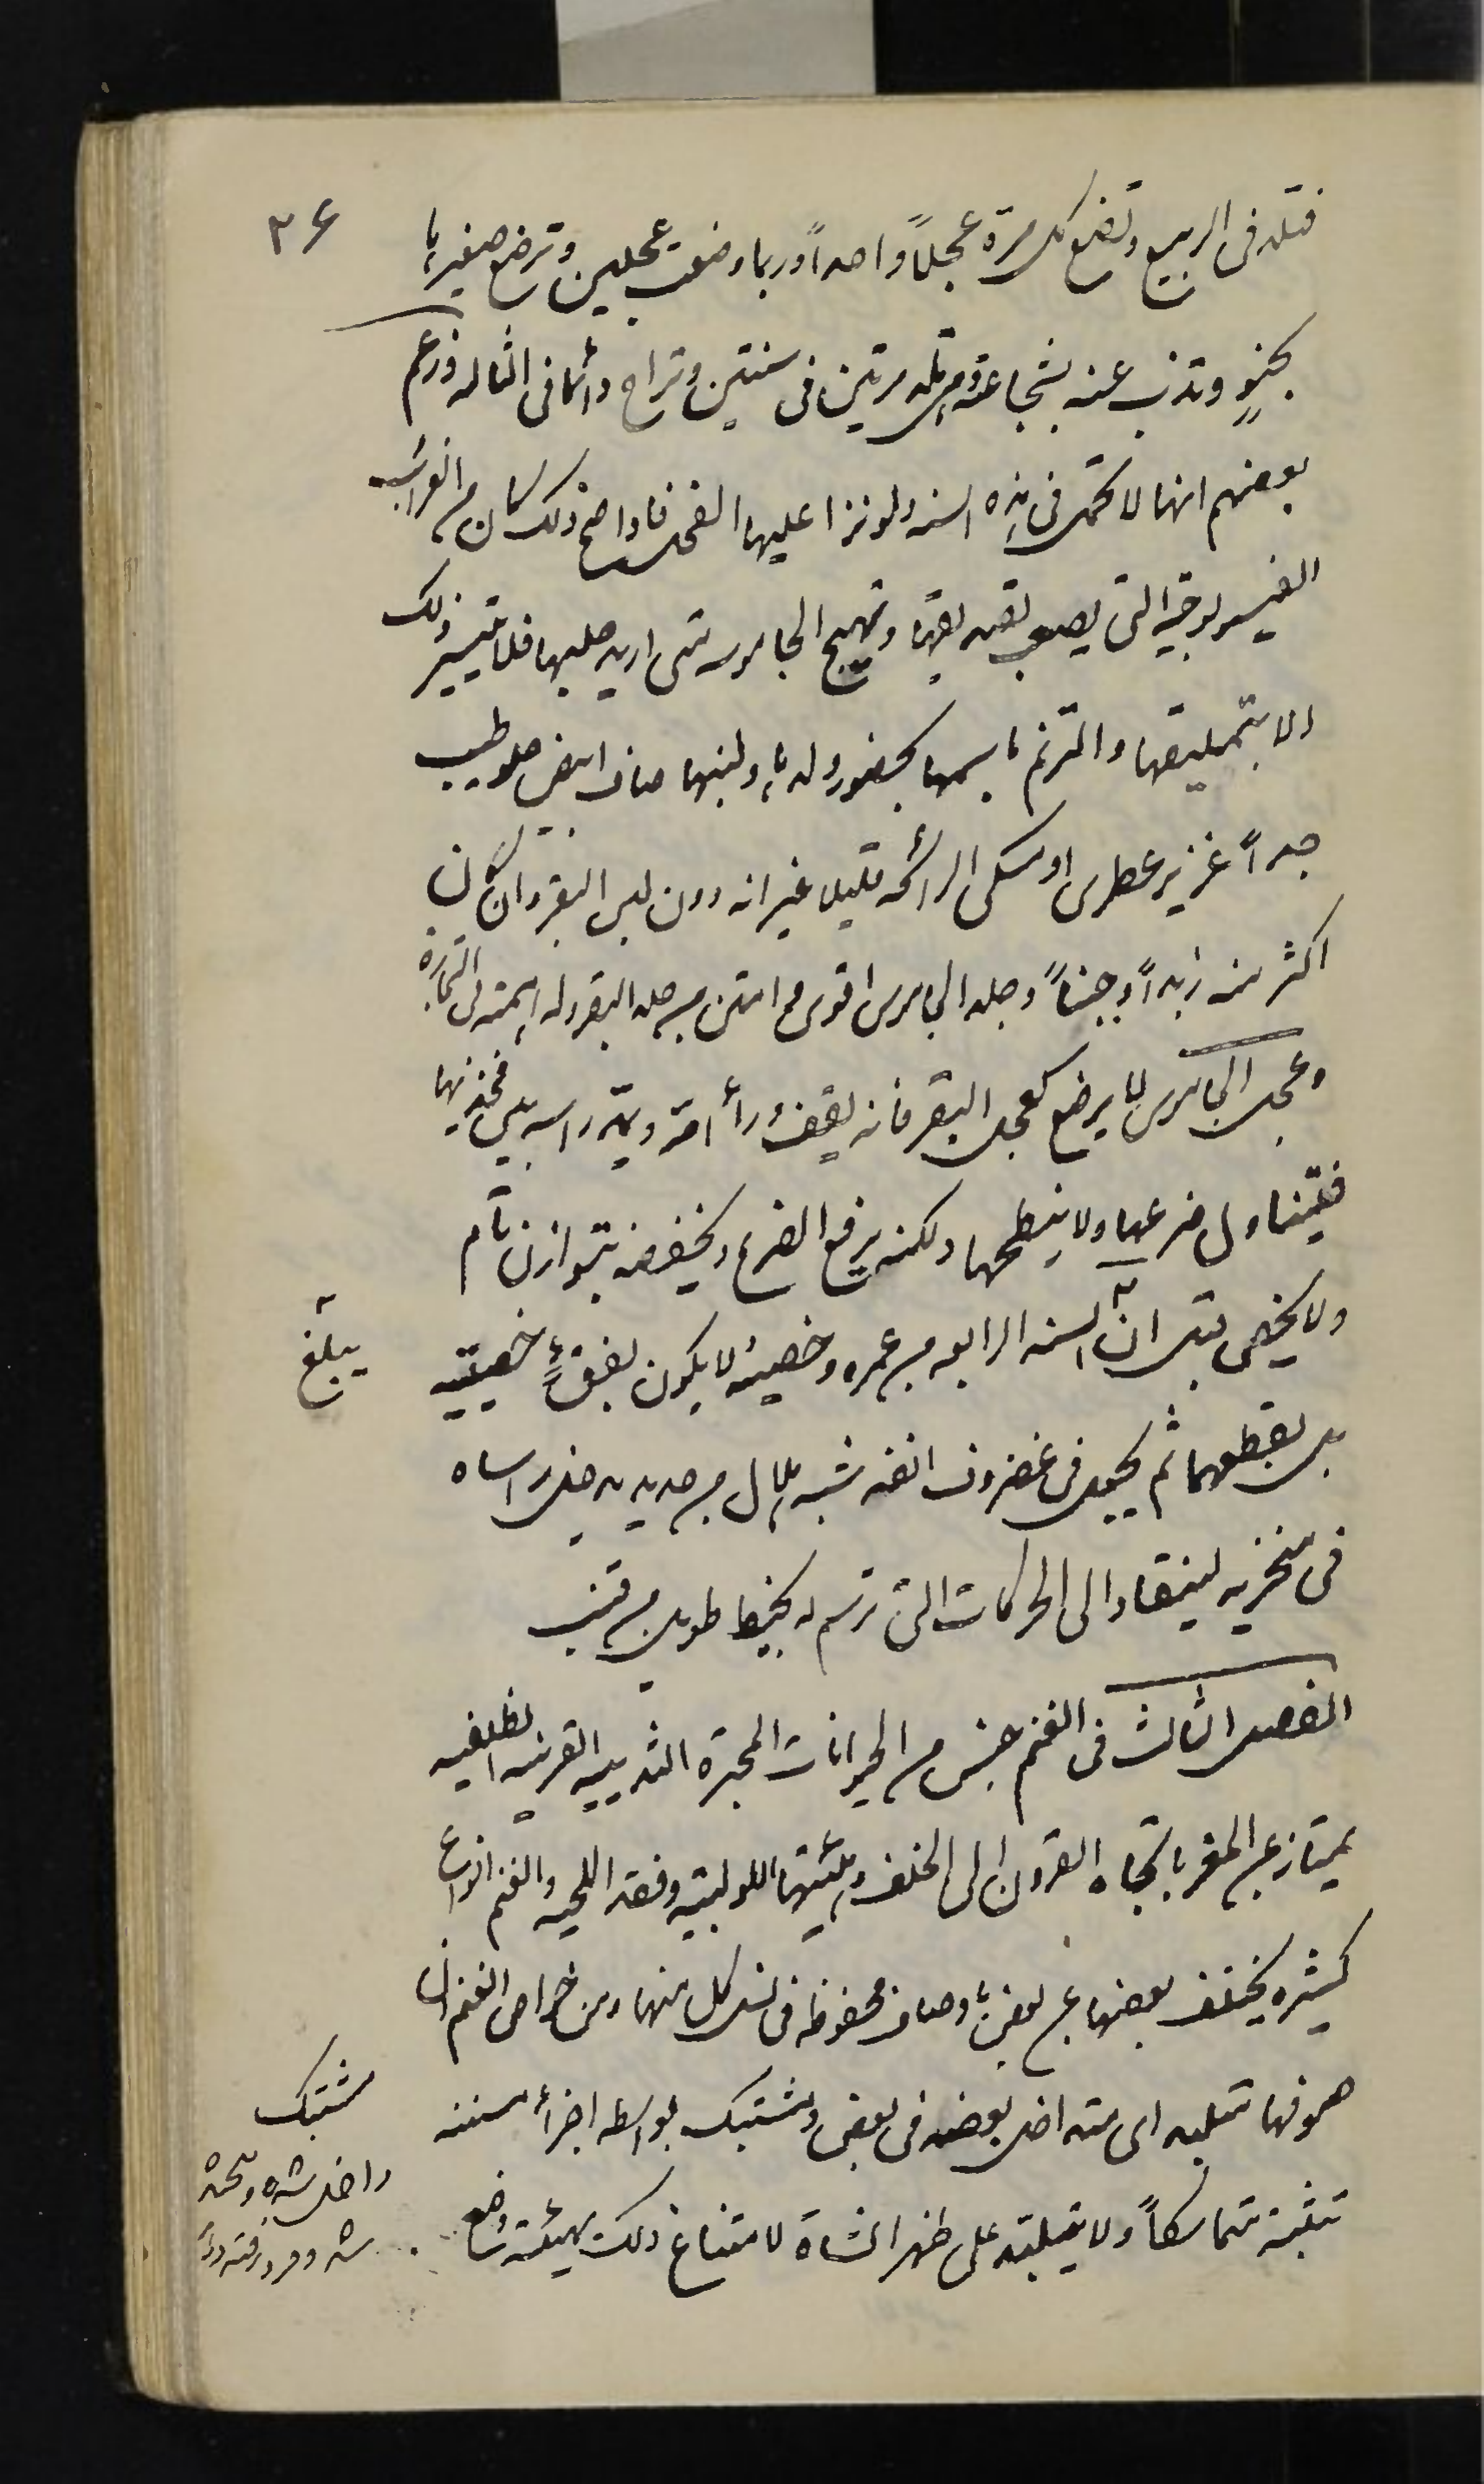 ٣۶
فتلد فی الربیع وتضع کل مرة عجلاً واحداً وربما وضعت عجلین وترضع صغیرها
بحنوٍ وتذب عنه بشجاعة وهی تلد مرتین فی سنتین وتراح دائما فی الثالثه وزعم
بعضهم انها لا تحمل فی هذه السنه ولو نزا علیها الفحل فاذا صح ذلک کان من الغرائب
الفیسیولوجیة التی یصعب تعلیلها وتهیج الجاموسه متی ارید حلبها فلا یتیسر ذلک
الا بتملیقها والترنم باسمها بحضور ولدها ولبنها صاف ابیض حلو طیب
جداً غزیر عطری او مسکی الرائحه قلیلا غیر انه دون لبن البقر وان کان
اکثر منه زبداً وجبناً وجلد الجاموس اقوی وامتن من جلد البقر وله اهمیته فی التجارة
وعجل الجاموس لا یرضع کعجل البقر فانه یقف وراء امه ویمد راسه بین فخذیها
فیتناول ضرعها ولا ینطحها ولکنه یرفع الضرع ویخفضه بتوازن تام
ولا یخصی قبل ان السنه الرابعه من عمره وخصیه لا یکون بفقء خصیتیه
یبلغ
بل بقطعهما ثم یجعل فی غضروف انفه شبه هلال من حدید یدخل راساه
فی منخریه لینقاد الی الحرکات التی ترسم له بخیط طویل من قنب
الفصل الثالث فی الغنم جنس من الحیوانات المجترة الثدییه القرنیه الظلفیه
یمتاز عن المعز باتجاه القرون الی الخلف وهیئتها اللولبیه وفقد اللحیه والغنم انواع
کثیره یختلف بعضها عن بعض باوصاف محفوظه فی نسل کل منها ومن خواص الغنم ان
صوفها متلبد ای متداخل بعضه فی بعض ومشتبک بواسطه اجزاء مسننه
مشتبک
تثبته متماسکاً ولا یتلبد علی ظهر الشاة لامتناع ذلک بهیئة وضع
داخل شده و
شده و فرو رفته